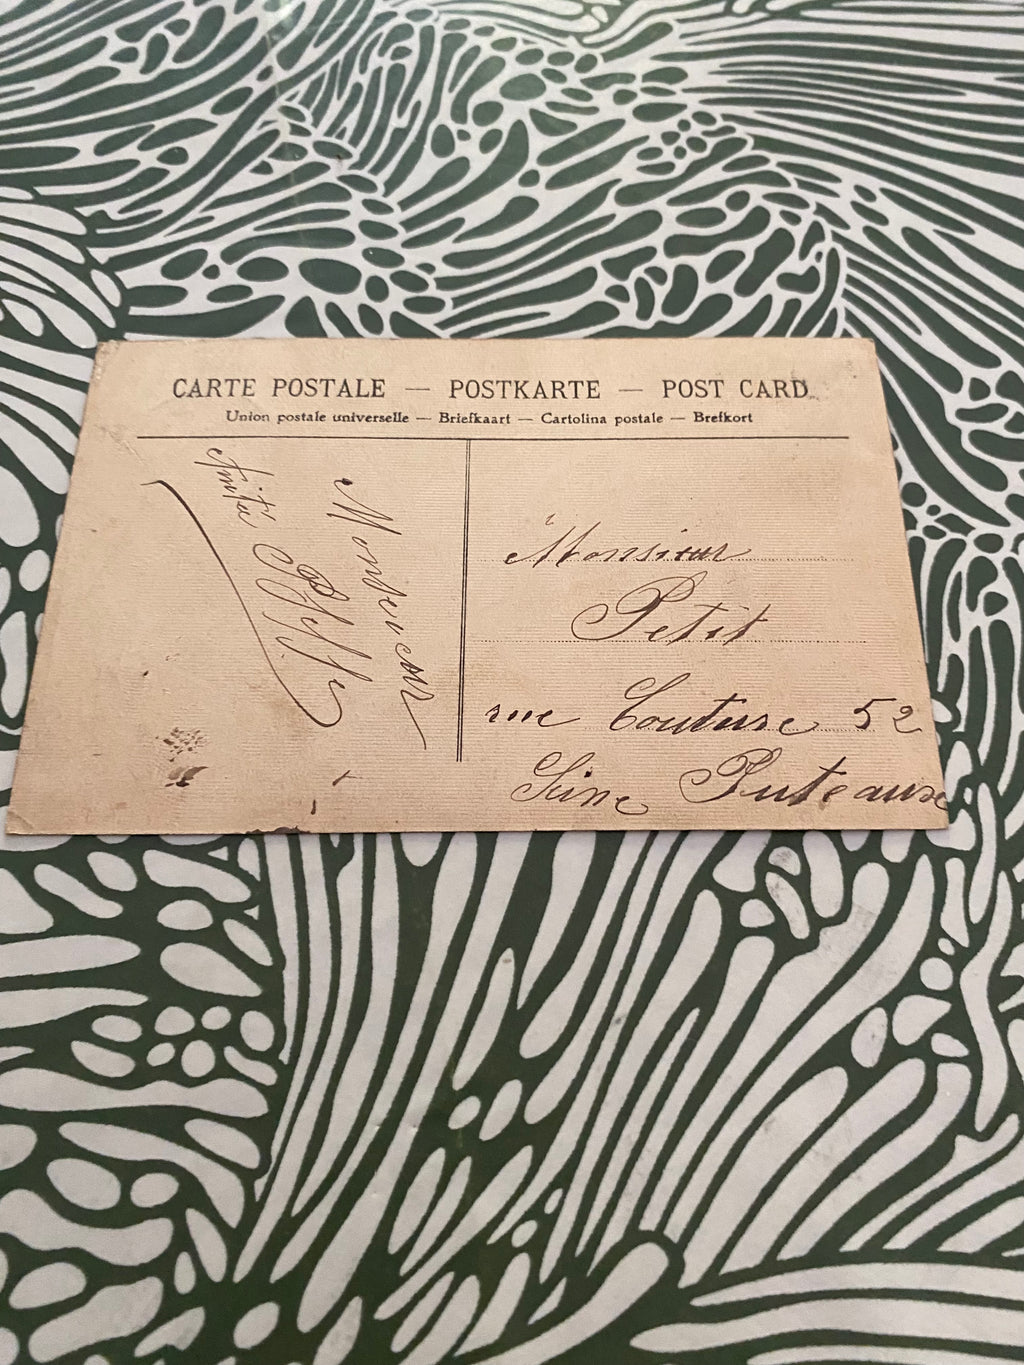 CARTE POSTALE — POSTKARTE — POST CARD
Union postale universelle — Briefkaart — Cartolina postale — Brefkort
Monsieur
Anita
Monsieur
Petit
rue Couture 52
Seine Puteaux